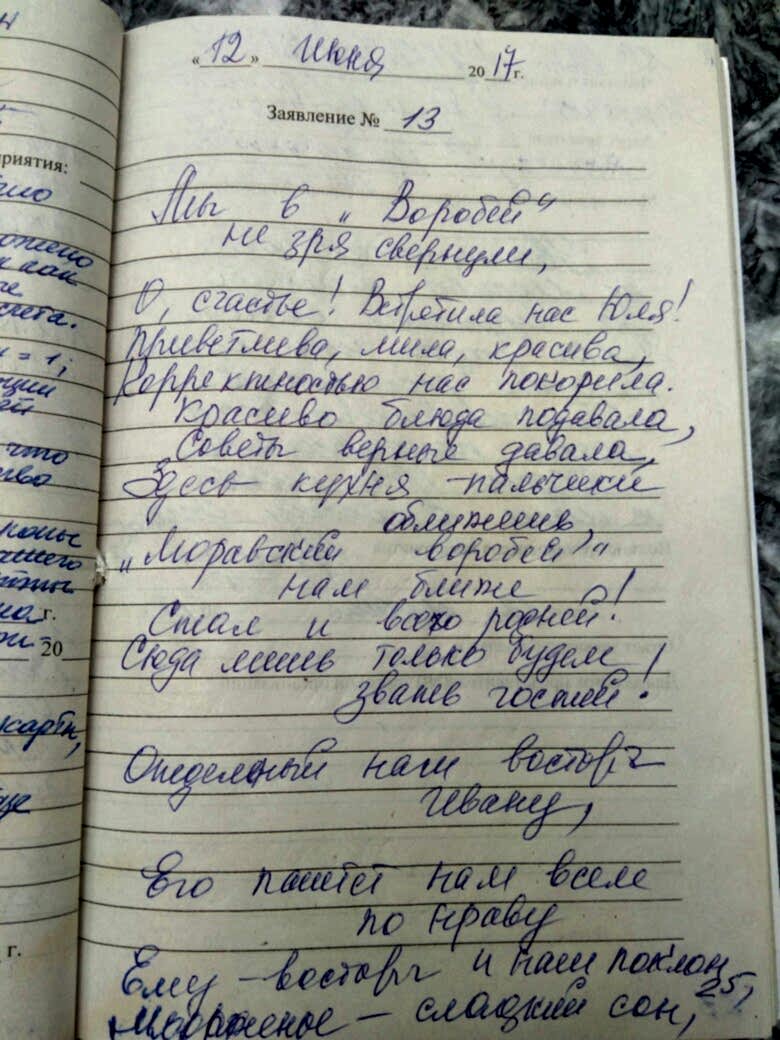 "12" Июня 2017г.
Заявление № 13
Мы в „Воробей"
не зря свернули,
О, счастье! Встретила нас Юля!
приветлива, мила, красива,
Корректностью нас покорила.
Красиво блюда подавала,
Советы верные давала,
Здесь кухня - пальчики
оближешь,
„Моравский воробей"
нам ближе
Стал и всего родней!
Сюда лишь только будем
звать гостей!
Отдельный наш восторг
Ивану,
Его паштет нам всем
по нраву
Ему - восторг и наш поклон,
Мороженое - сладкий сон,
25,
приятия:
= 1;
что
20
г.
г.